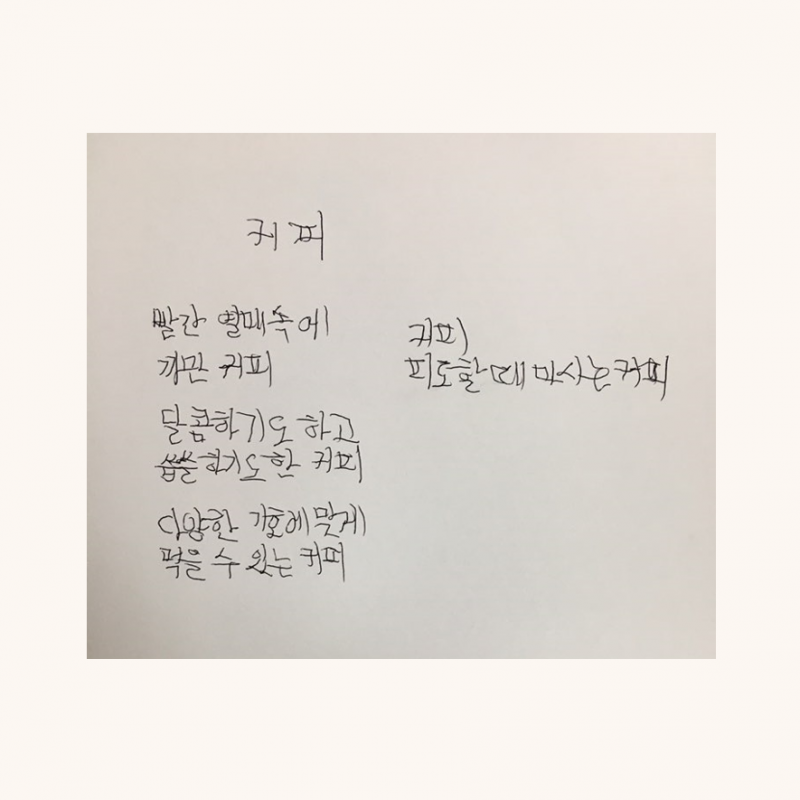 커피
빨간 열매속에
까만 커피
달콤하기도 하고
씁쓸하기도한 커피
다양한 기호에 맞게
먹을 수 있는 커피
커피
피로할때 마시는 커피